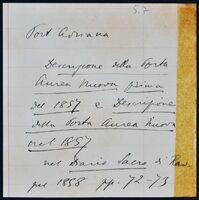 5.7
Port Adriana
Descrizione della Porta
Aurea Nuova prima
del 1857 e Descrizione
della Porta Aurea Nuova
nel 1857
nel Diario Sacro di Rav.
pel 1858 pp. 72-73